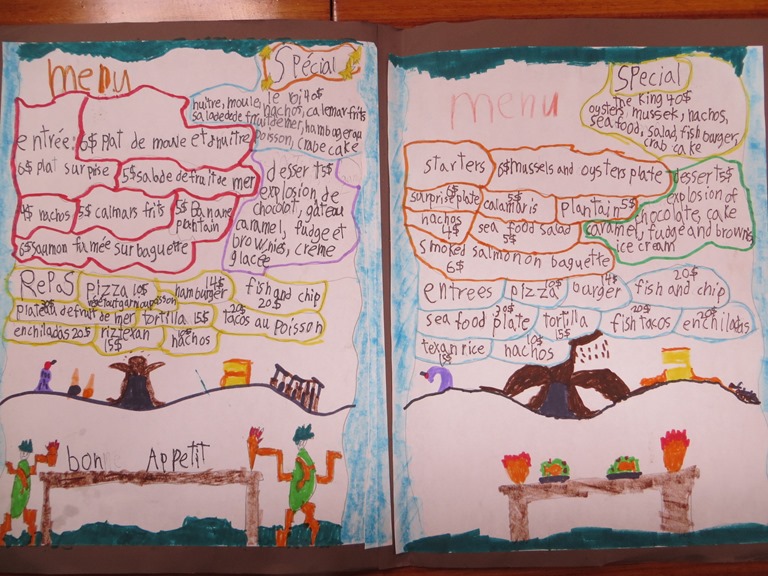 menu
Spécial
le roi 40$
huître, moule, nachos, calemar frits
salade de fruit de mer, hambagerau
poisson, crabe cake
entrée: 6$ plat de moule et d'huître
6$ plat surprise 5$ salade de fruit de mer
4$ nachos 5$ calmars frits 5$ banane
plantain
6$ saumon fumée sur baguette
dessert 5$
explosion de
chocolat, gâteau
caramel, fudge et
brownies, crème
glacée
RePaS pizza 10$ hamburger 14$ fish and chip
20$
plateau de fruit de mer 30$ tortilla 15$ tacos au poisson
20$
enchiladas 20$ riz texan nachos
15$ 10$
bon Appetit
menu
Special
The King 40$
oysters mussek, nachos,
sea food, salad fish burger,
crab cake
starters 6$ mussels and oysters plate
surprise plate 6$ calamaris 5$ plantain 5$
nachos 4$ sea food salad
5$
smoked salmon on baguette
6$
dessert 5$
explosion of
chocolate, cake
caramel, fudge and brownis
ice cream
entrees pizza 10$ burger 14$ fish and chip 20$
sea food plate 30$ tortilla 15$ fish tacos 20$ enchiladas 20$
texan rice nachos 10$
15$